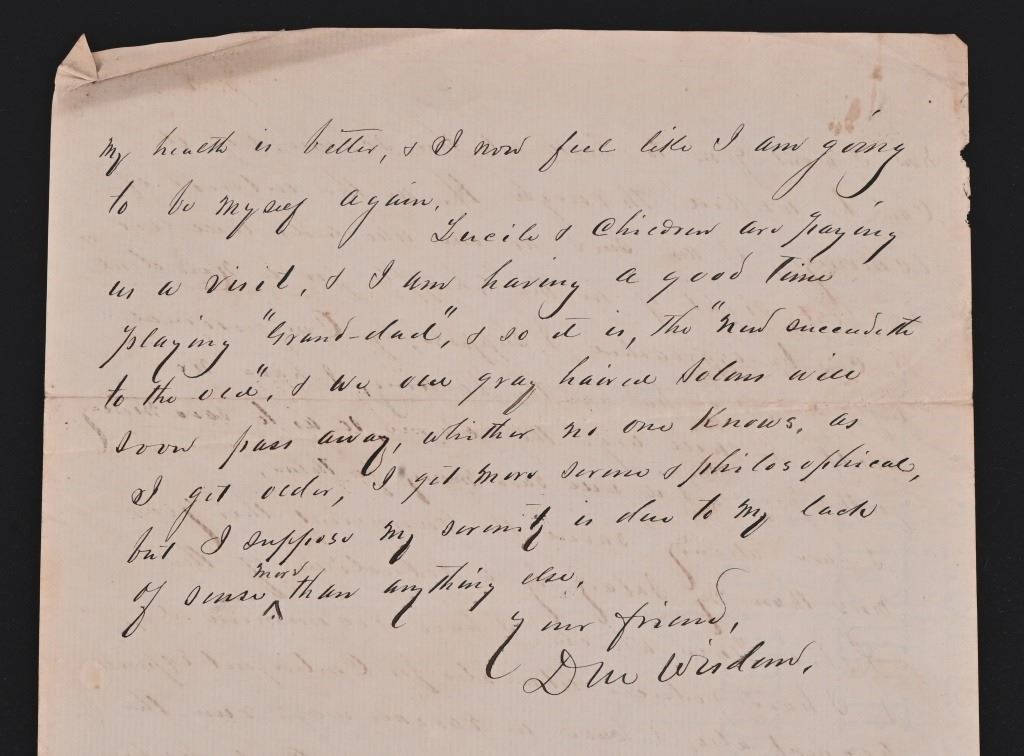 my health is better, & I now feel like I am going
to be myself again.
Lucile & Children are paying
us a visit, & I am having a good time
playing "Grand-dad", & so it is, the "new succeedeth
to the old", & we old gray haired Solons will
soon pass away, whither no one Knows, as
I get older, I get more serene & philosophical,
but I suppose my serenity is due to my lack
of sense more than anything else.
Your friend,
D M Wisdom.